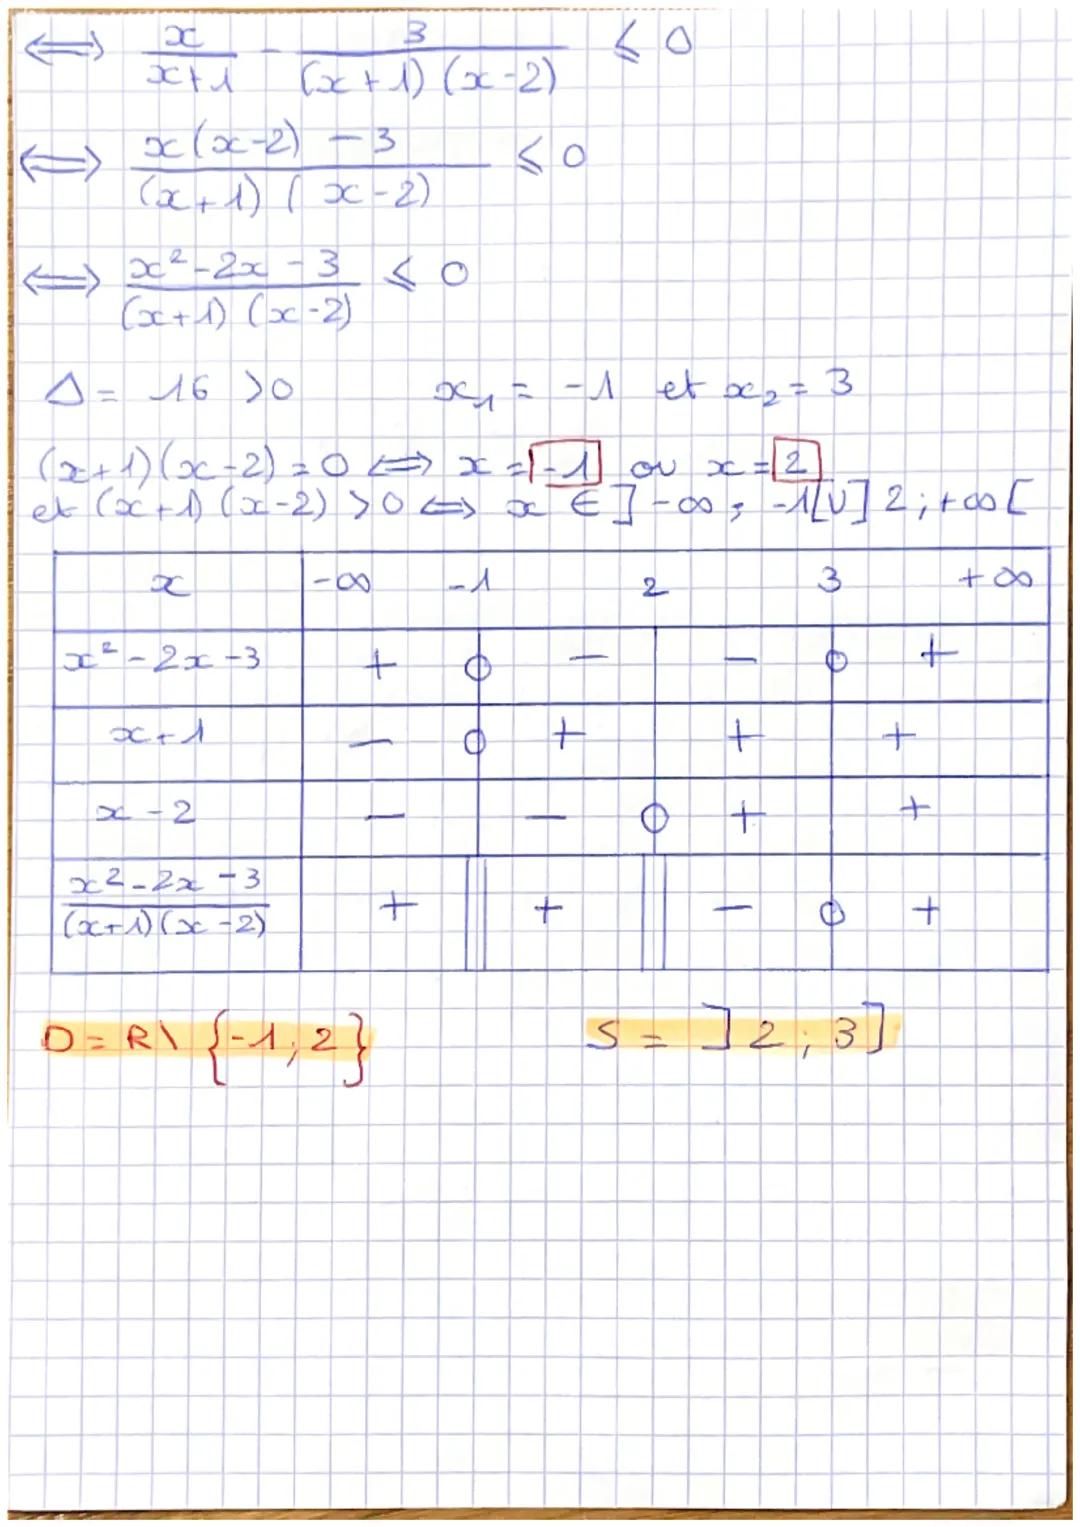 ⟺ x/(x+1) - 3/((x+1)(x-2)) ⩽ 0
⟺ (x(x-2) - 3)/((x+1)(x-2)) ⩽ 0
⟺ (x² - 2x - 3)/((x+1)(x-2)) ⩽ 0
Δ = 16 > 0 x₁ = -1 et x₂ = 3
(x+1)(x-2) = 0 ⟺ x = -1 ou x = 2
et (x+1)(x-2) > 0 ⟺ x ∈ ]-∞ ; -1[ U ]2 ; +∞[
x -∞ -1 2 3 +∞
x² - 2x - 3 + 0 - - 0 +
x+1 - 0 + + +
x - 2 - - 0 + +
(x² - 2x - 3)/((x+1)(x-2)) + || + || - 0 +
D = R\ {-1; 2} S = ]2 ; 3]